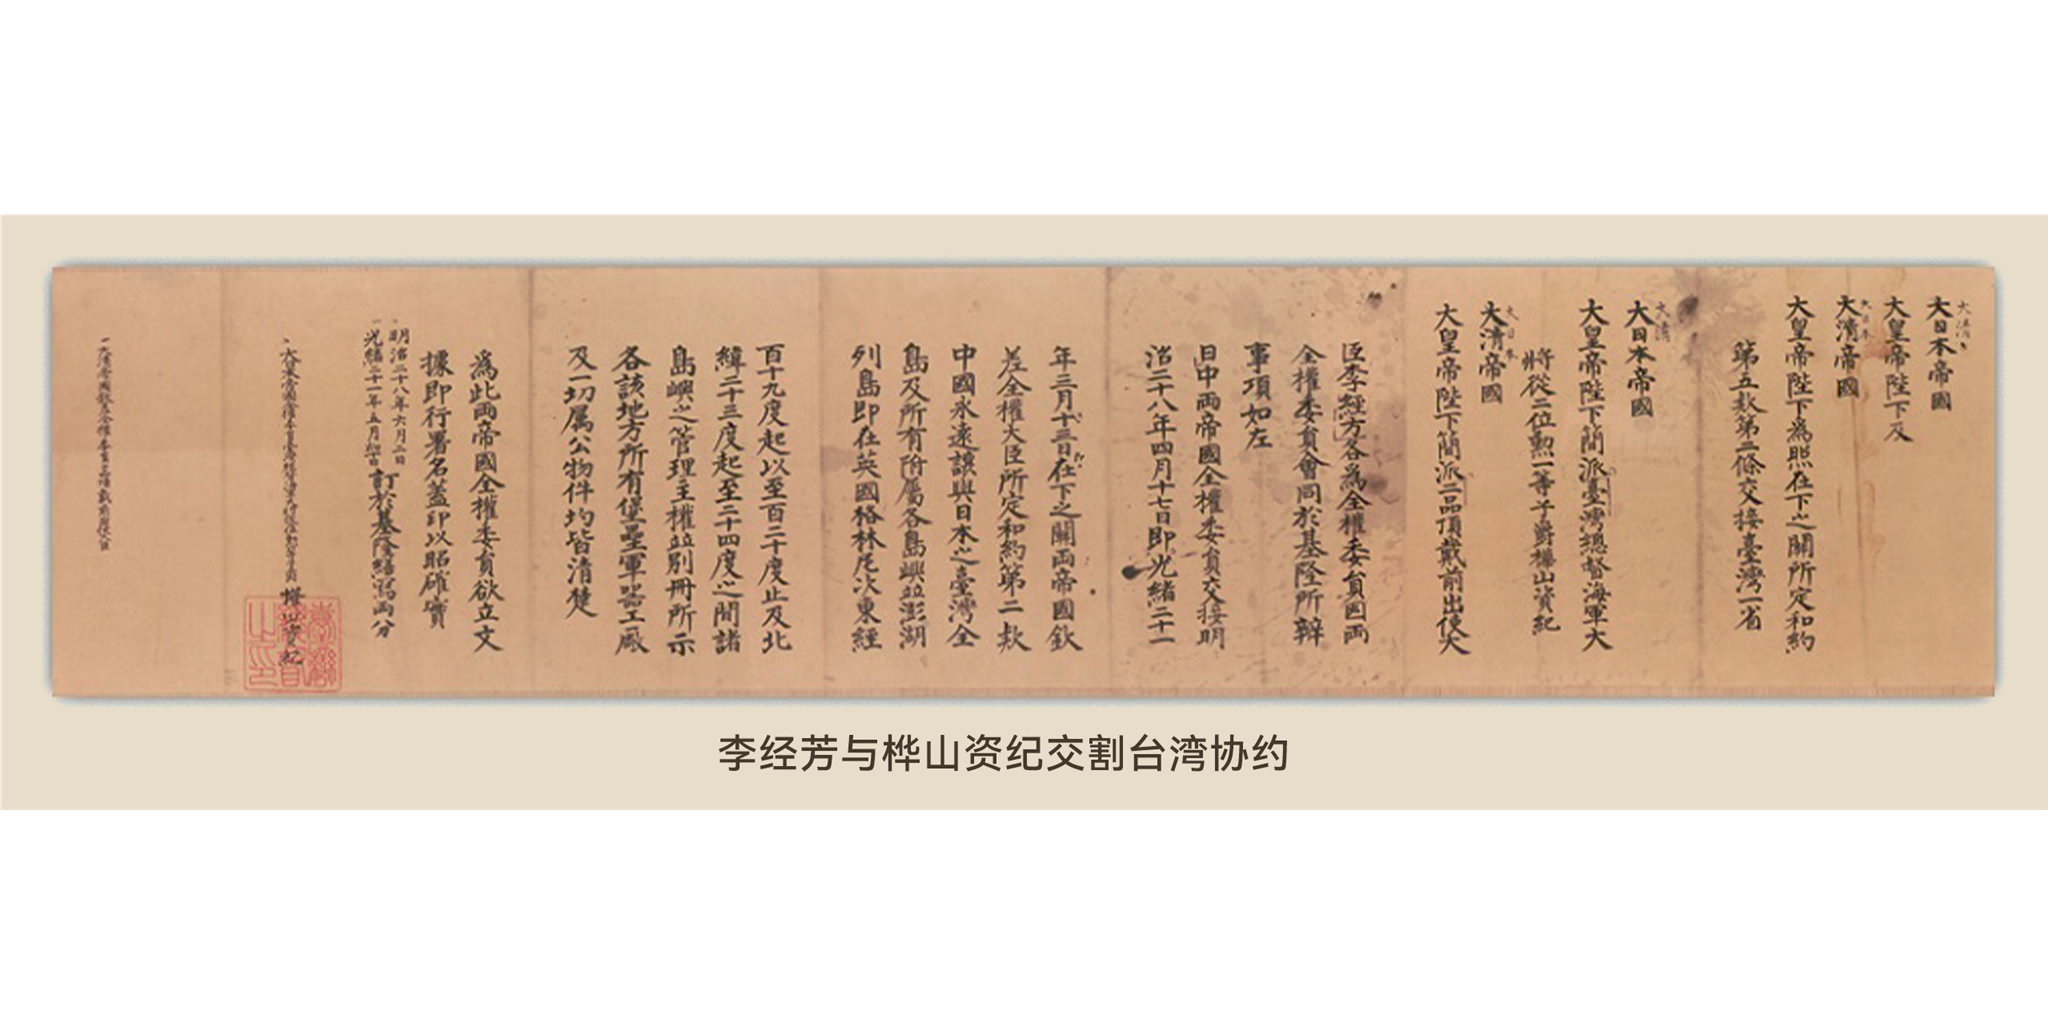 大清
大日本帝國
大皇帝陛下及
大日本
大清帝國
大皇帝陛下為照在下之關所定和約
第五款第二條交接臺灣一省
大清
大日本帝國
大皇帝陛下簡派臺灣總督海軍大
將從二位勲一等子爵樺山資紀
大日本
大清帝國
大皇帝陛下簡派二品頂戴前出使大
臣李經方各為全權委員因兩
全權委員會同於基隆所辦
事項如左
日中兩帝國全權委員交接明
治二十八年四月十七日即光緒二十一
年三月二十三日在下之關兩帝國欽
差全權大臣所定和約第二款
中國永遠讓與日本之臺灣全
島及所有附屬各島嶼並澎湖
列島即在英國格林尼次東經
百十九度起以至百二十度止及北
緯二十三度起至二十四度之間諸
島嶼之管理主權並別冊所示
各該地方所有堡壘軍器工廠
及一切属公物件均皆清楚
為此兩帝國全權委員欲立文
據即行署名蓋印以昭確實
明治二十八年六月二日
光緒二十一年五月初十日訂於基隆繕寫兩分
樺山資紀
李经芳与桦山资纪交割台湾协约